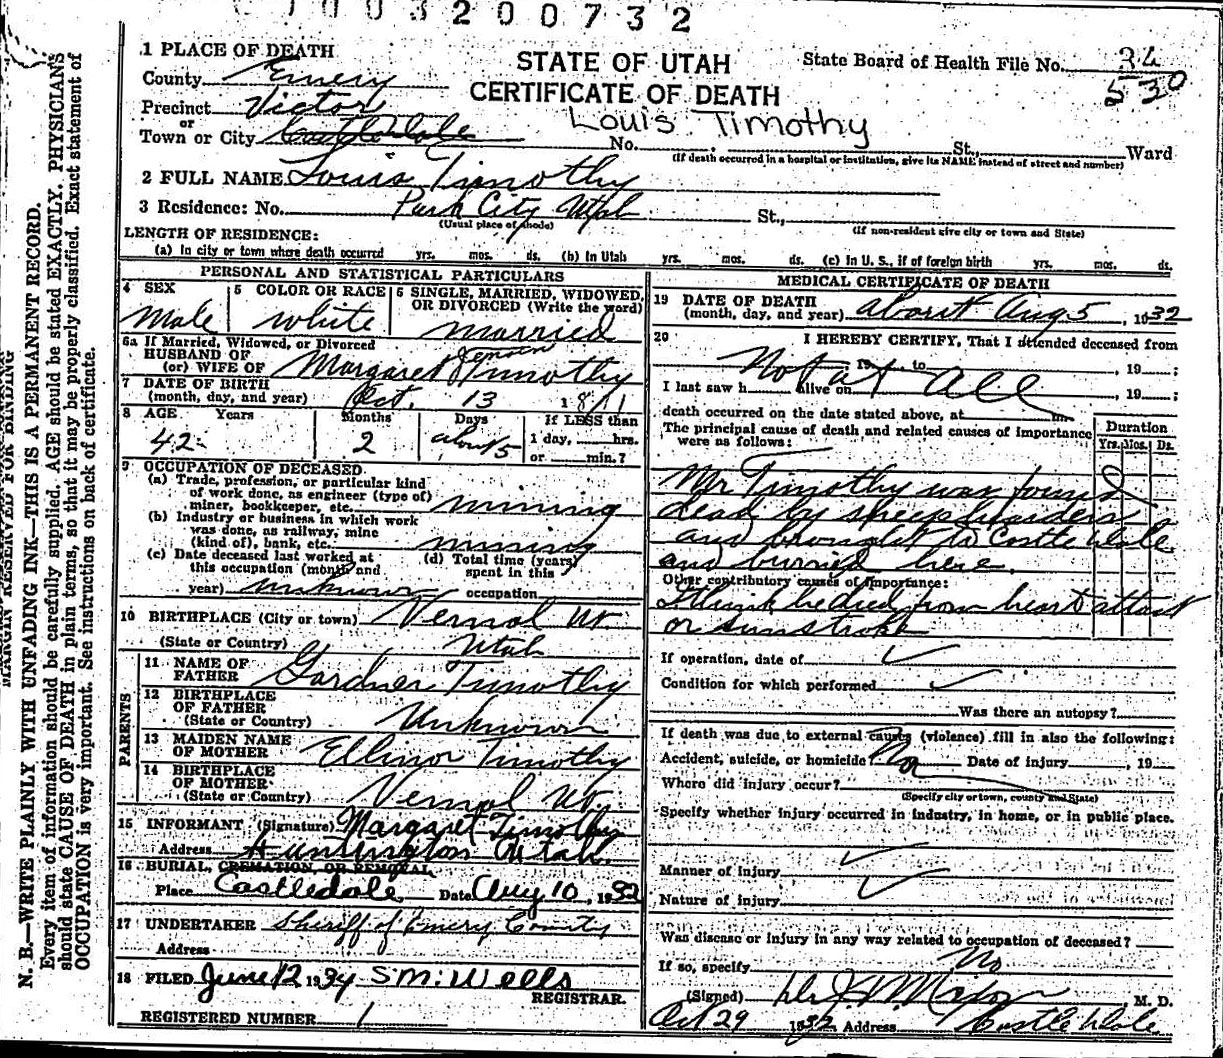 0 0 3 2 0 0 7 3 2
1 PLACE OF DEATH
STATE OF UTAH
State Board of Health File No. 34
County Emery
CERTIFICATE OF DEATH
530
Precinct Victor
Louis Timothy
or
Town or City Castle Dale No. St., Ward
(If death occurred in a hospital or institution, give its NAME instead of street and number)
2 FULL NAME Louis Timothy
3 Residence: No. Park City Utah St.,
(Usual place of abode) (If non-resident give city or town and State)
LENGTH OF RESIDENCE:
(a) In city or town where death occurred yrs. mos. ds. (b) In Utah yrs. mos. ds. (c) In U. S., if of foreign birth yrs. mos. ds.
PERSONAL AND STATISTICAL PARTICULARS
4 SEX
Male
5 COLOR OR RACE
white
6 SINGLE, MARRIED, WIDOWED, OR DIVORCED (Write the word)
married
6a If Married, Widowed, or Divorced
HUSBAND OF
(or) WIFE OF Margaret Timothy
7 DATE OF BIRTH
(month, day, and year) Oct. 13
8 AGE Years Months Days If LESS than
42 2 about 5 1 day, hrs.
or min.?
9 OCCUPATION OF DECEASED
(a) Trade, profession, or particular kind
of work done, as engineer (type of)
miner, bookkeeper, etc. mining
(b) Industry or business in which work
was done, as railway, mine
(kind of), bank, etc. mining
(c) Date deceased last worked at
this occupation (month and
year) unknown
(d) Total time (years)
spent in this
occupation
10 BIRTHPLACE (City or town) Vernal Ut
(State or Country) Utah
PARENTS
11 NAME OF
FATHER Gardner Timothy
12 BIRTHPLACE
OF FATHER
(State or Country) Unknown
13 MAIDEN NAME
OF MOTHER Ellinor Timothy
14 BIRTHPLACE
OF MOTHER
(State or Country) Vernal Ut.
15 INFORMANT (Signature) Margaret Timothy
Address Huntington Utah.
16 BURIAL, CREMATION, OR REMOVAL
Place Castledale Date Aug 10, 1932
17 UNDERTAKER Sheriff of Emery County
Address
18 FILED June 12 1934 S.M. Wells
REGISTRAR.
REGISTERED NUMBER 1
MEDICAL CERTIFICATE OF DEATH
19 DATE OF DEATH
(month, day, and year) about Aug 5, 1932
20 I HEREBY CERTIFY, That I attended deceased from
Not at all , 19 , to , 19 ;
I last saw h alive on , 19 ;
death occurred on the date stated above, at m.
The principal cause of death and related causes of importance
were as follows:
Duration
Yrs. Mos. Ds.
Mr Timothy was found
dead by sheep hearders
and brought to Castle Dale
and burried here.
Other contributory causes of importance:
I think he died from heart attack
or sunstroke
If operation, date of
Condition for which performed
Was there an autopsy?
If death was due to external causes (violence) fill in also the following:
Accident, suicide, or homicide No Date of injury , 19
Where did injury occur?
(Specify city or town, county and State)
Specify whether injury occurred in industry, in home, or in public place.
Manner of injury
Nature of injury
Was disease or injury in any way related to occupation of deceased?
If so, specify No
(Signed) M. D.
Oct 29 1932 Address Castle Dale
MARGIN RESERVED FOR BINDING
N. B.—WRITE PLAINLY WITH UNFADING INK—THIS IS A PERMANENT RECORD.
Every item of information should be carefully supplied. AGE should be stated EXACTLY. PHYSICIANS
should state CAUSE OF DEATH in plain terms, so that it may be properly classified. Exact statement of
OCCUPATION is very important. See instructions on back of certificate.